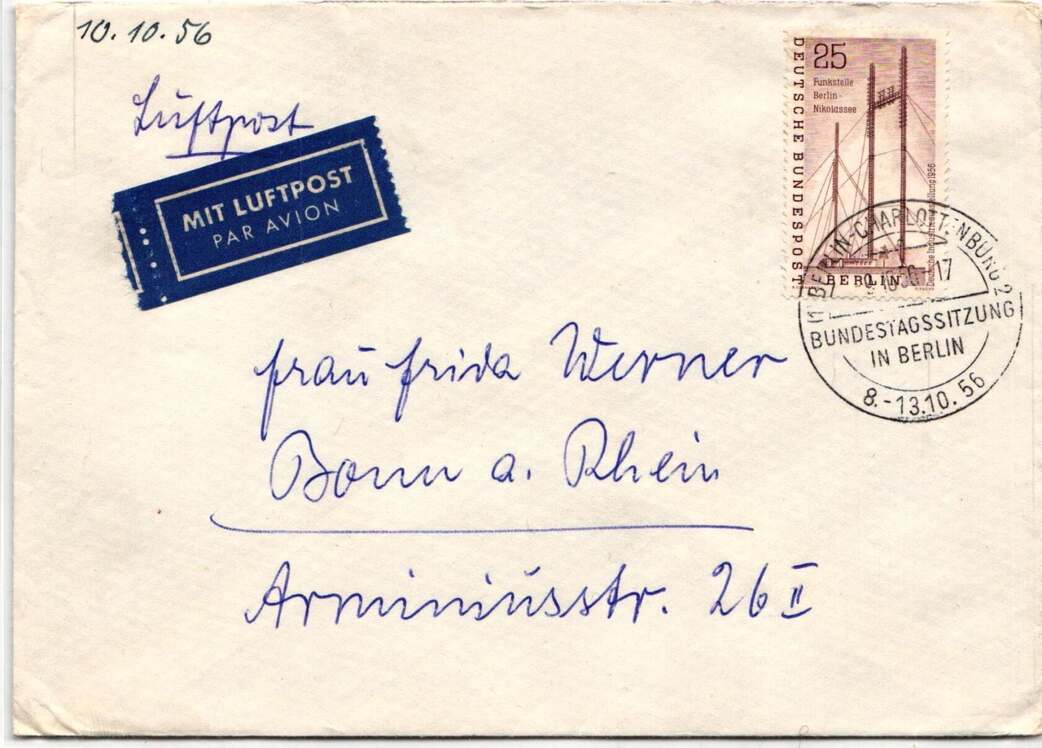 10.10.56
Luftpost
MIT LUFTPOST
PAR AVION
25
Funkstelle
Berlin-
Nikolassee
DEUTSCHE BUNDESPOST
BERLIN
Deutsche Industrieausstellung 1956
BERLIN-CHARLOTTENBURG 2
-17
BUNDESTAGSSITZUNG
IN BERLIN
8.-13.10.56
Frau Frida Werner
Bonn a. Rhein
Arminiusstr. 26 II